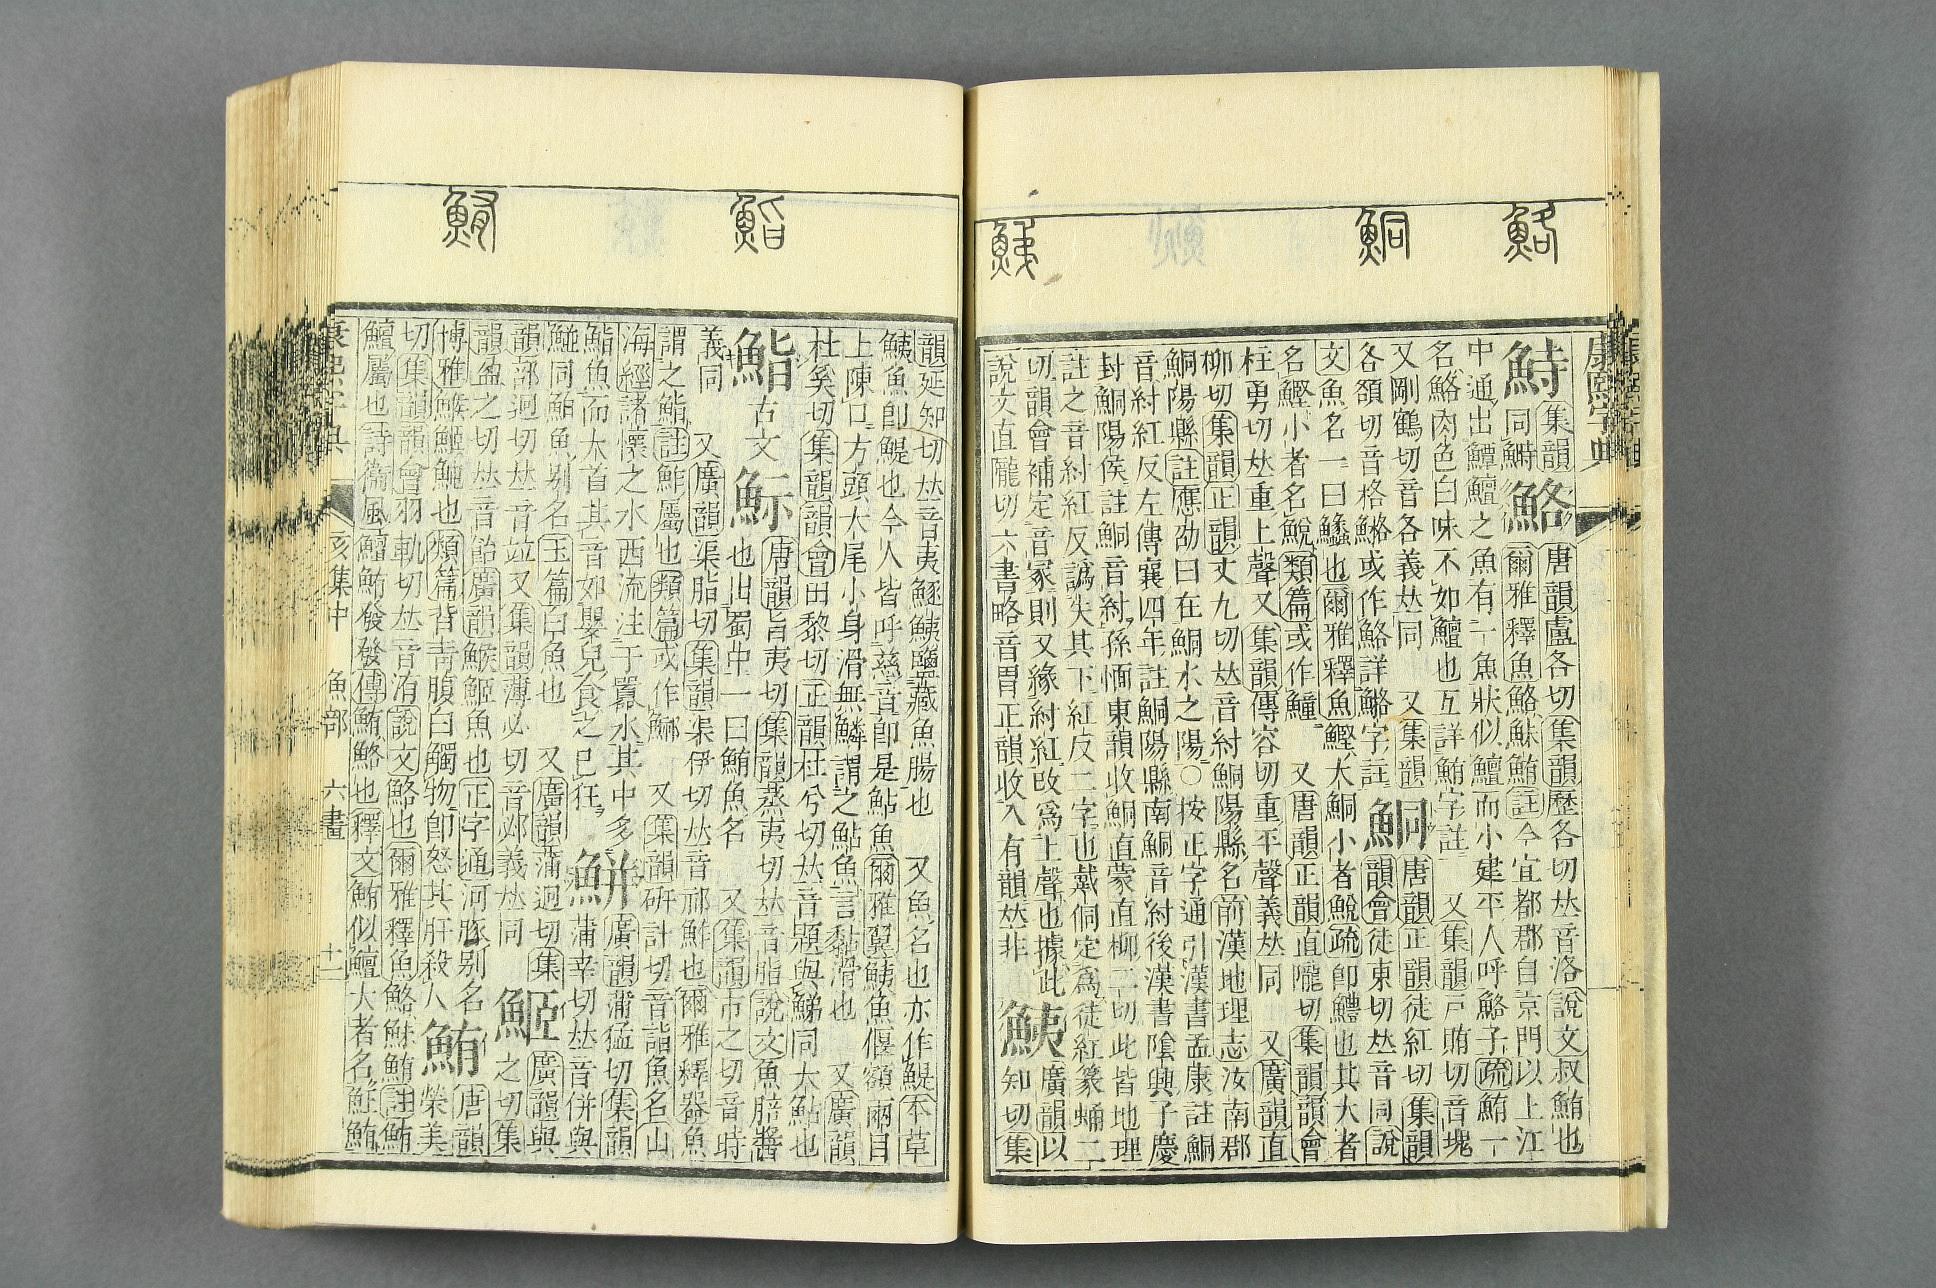 鮥
鮦
鮧
康熙字典
鮚同鰣 鮥 唐韻盧各切集韻歷各切𠀤音洛說文叔鮪也
爾雅釋魚鮥鮛鮪註今宜都郡自京門以上江
中通出鱏鱣之魚有一魚狀似鱣而小建平人呼鮥子疏鮪一
名鮥肉色白味不如鱣也互詳鮪字註 又集韻戸賄切音塊
又剛鶴切音各義𠀤同 又集韻
各頟切音格鮥或作鮥詳鮥字註 鮦 唐韻正韻徒紅切集韻
韻會徒東切𠀤音同說
文魚名一曰鱶也爾雅釋魚鰹大鮦小者鮵疏卽鱧也其大者
名鰹小者名鮵類篇或作鱦 又唐韻正韻直隴切集韻韻會
柱勇切𠀤重上聲又集韻傳容切重平聲義𠀤同 又廣韻直
柳切集韻正韻丈九切𠀤音紂鮦陽縣名前漢地理志汝南郡
鮦陽縣註應劭曰在鮦水之陽○按正字通引漢書孟康註鮦
音紂紅反左傳襄四年註鮦陽縣南鮦音紂後漢書隂興子慶
封鮦陽侯註鮦音紂孫愐東韻收鮦直蒙直柳二切此皆地理
註之音紂紅反譌失其下紅反二字也戴侗定爲徒紅篆蛹二
切韻會補定音冢則又緣紂紅改爲上聲也據此
說文直隴切六書略音胃正韻收入有韻𠀤非 鮧 廣韻以
知切集
鮨
鮪
韻延知切𠀤音夷鱁鮧鹽藏魚腸也 又魚名也亦作鯷本草
鮧魚卽鯷也今人皆呼慈音卽是鮎魚爾雅翼鮧魚偃額兩目
上陳口方頭大尾小身滑無鱗謂之鮎魚言黏滑也 又廣韻
杜奚切集韻韻會田黎切正韻杜兮切𠀤音題與鯷同大鮎也
鮨 古文 䱆 唐韻旨夷切集韻蒸夷切𠀤音脂說文魚䏽醬
也出蜀中一曰鮪魚名 又集韻市之切音時
義同 又廣韻渠脂切集韻渠伊切𠀤音祁鮓也爾雅釋器魚
謂之鮨註鮓屬也類篇或作鰤 又集韻硏計切音詣魚名山
海經諸懷之水西流注于囂水其中多
鮨魚而犬首其音如嬰兒食之已狂 鮩 廣韻蒲猛切集韻
蒲幸切𠀤音倂與
䱟同鮊魚别名玉篇白魚也 又廣韻蒲迥切集
韻部迥切𠀤音竝又集韻薄必切音邲義𠀤同 䱌 廣韻與
之切集
韻盈之切𠀤音飴廣韻鯸䱌魚也正字通河豚别名
博雅鯸䱌魨也類篇背靑腹白觸物卽怒其肝殺人 鮪 唐韻
榮美
切集韻韻會羽軌切𠀤音洧說文鮥也爾雅釋魚鮥鮛鮪註鮪
鱣屬也詩衞風鱣鮪發發傳鮪鮥也釋文鮪似鱣大者名鮏鮪
康熙字典 亥集中 魚部 六畫 十一